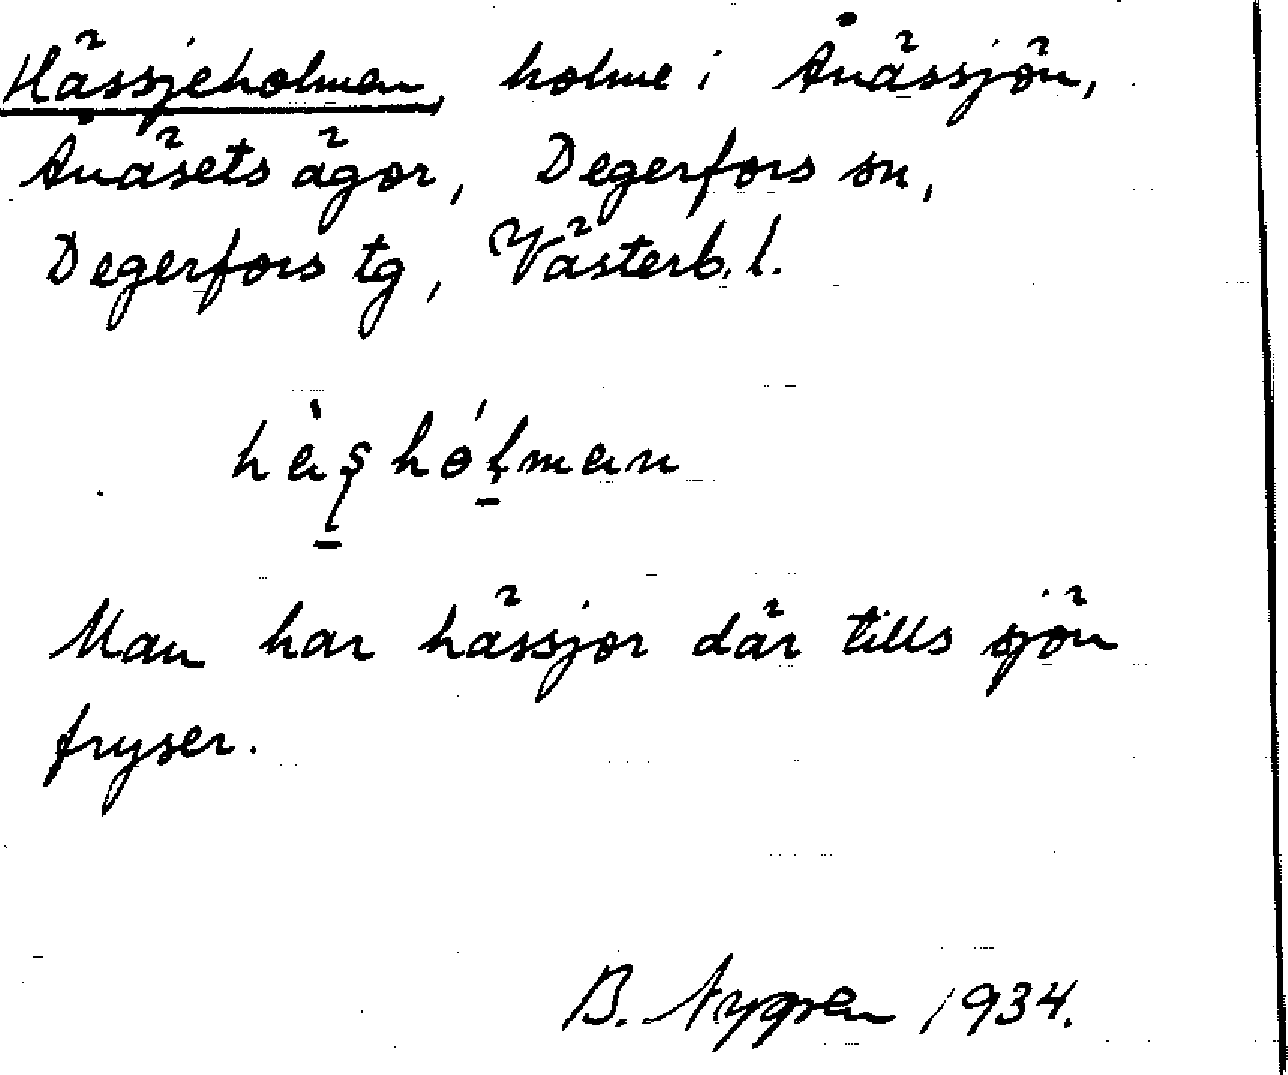 Hässjeholmen, holme i Ånässjön,
Ånäsets ägor, Degerfors sn,
Degerfors tg, Västerb. l.
Man har hässjor där tills sjön
fryser.
B. Nygren 1934.